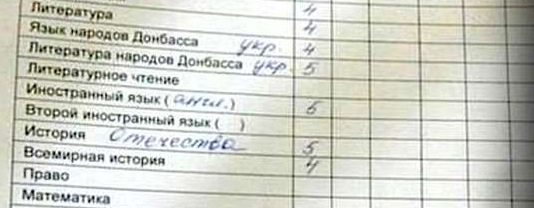 Литература 4
Язык народов Донбасса укр. 4
Литература народов Донбасса укр. 4
Литературное чтение 5
Иностранный язык (англ.)
Второй иностранный язык ( ) 5
История Отечества
Всемирная история 5
Право 4
Математика